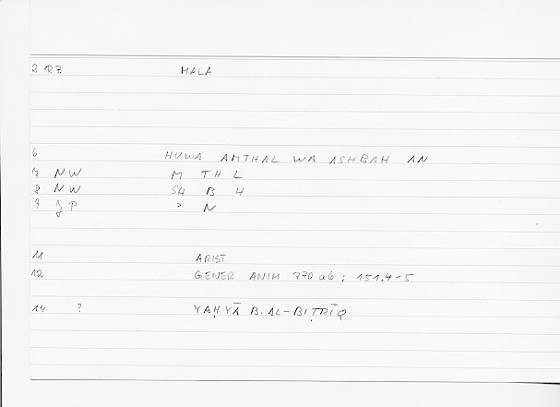 2 RZ MALA
6 HUWA AMTHAL WA ASHBAH AN
7 NW M TH L
8 NW SH B H
9 JP ʾ N
11 ARIST
12 GENER ANIM 770a6 : 151.4-5
14 ? YAḤYĀ B. AL-BIṬRĪQ